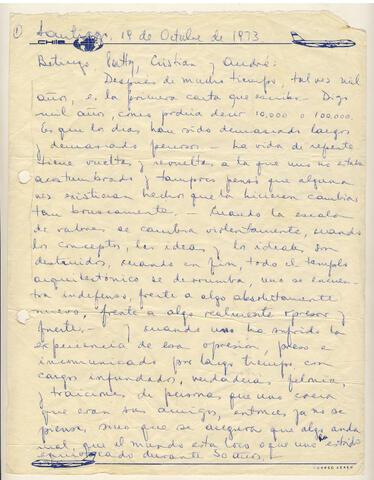 1
Santiago, 19 de Octubre de 1973
CHILE
Betingo, Cristián y Andrés:
Después de mucho tiempo, tal vez mil
años, es la primera carta que escribo. Digo
mil años, como podría decir 10.000 o 100.000.
Es que los días han sido demasiado largos
y demasiado penosos. — La vida de repente
tiene vueltas y revueltas a la que uno no estaba
acostumbrado y tampoco pensó que alguna
vez existieran hechos que la hicieran cambiar
tan bruscamente. — Cuando la escala
de valores se cambia violentamente, cuando
los conceptos, las ideas y los ideales son
destruidos, cuando en fin, todo el templo
arquitectónico se derrumba, uno se encuen-
tra indefenso, frente a algo absolutamente
nuevo, frente a algo realmente opresor y
fuerte. — Y cuando uno ha sufrido la
experiencia de esa opresión, preso e
incomunicado por largo tiempo con
cargos infundados, verdaderas felonías,
y traiciones de personas que uno creía
que eran sus amigos, entonces ya no se
piensa, sino que se asegura que algo anda
mal, que el mundo esta loco o que uno ha estado
equivocado durante 50 años. —
CORREO AEREO